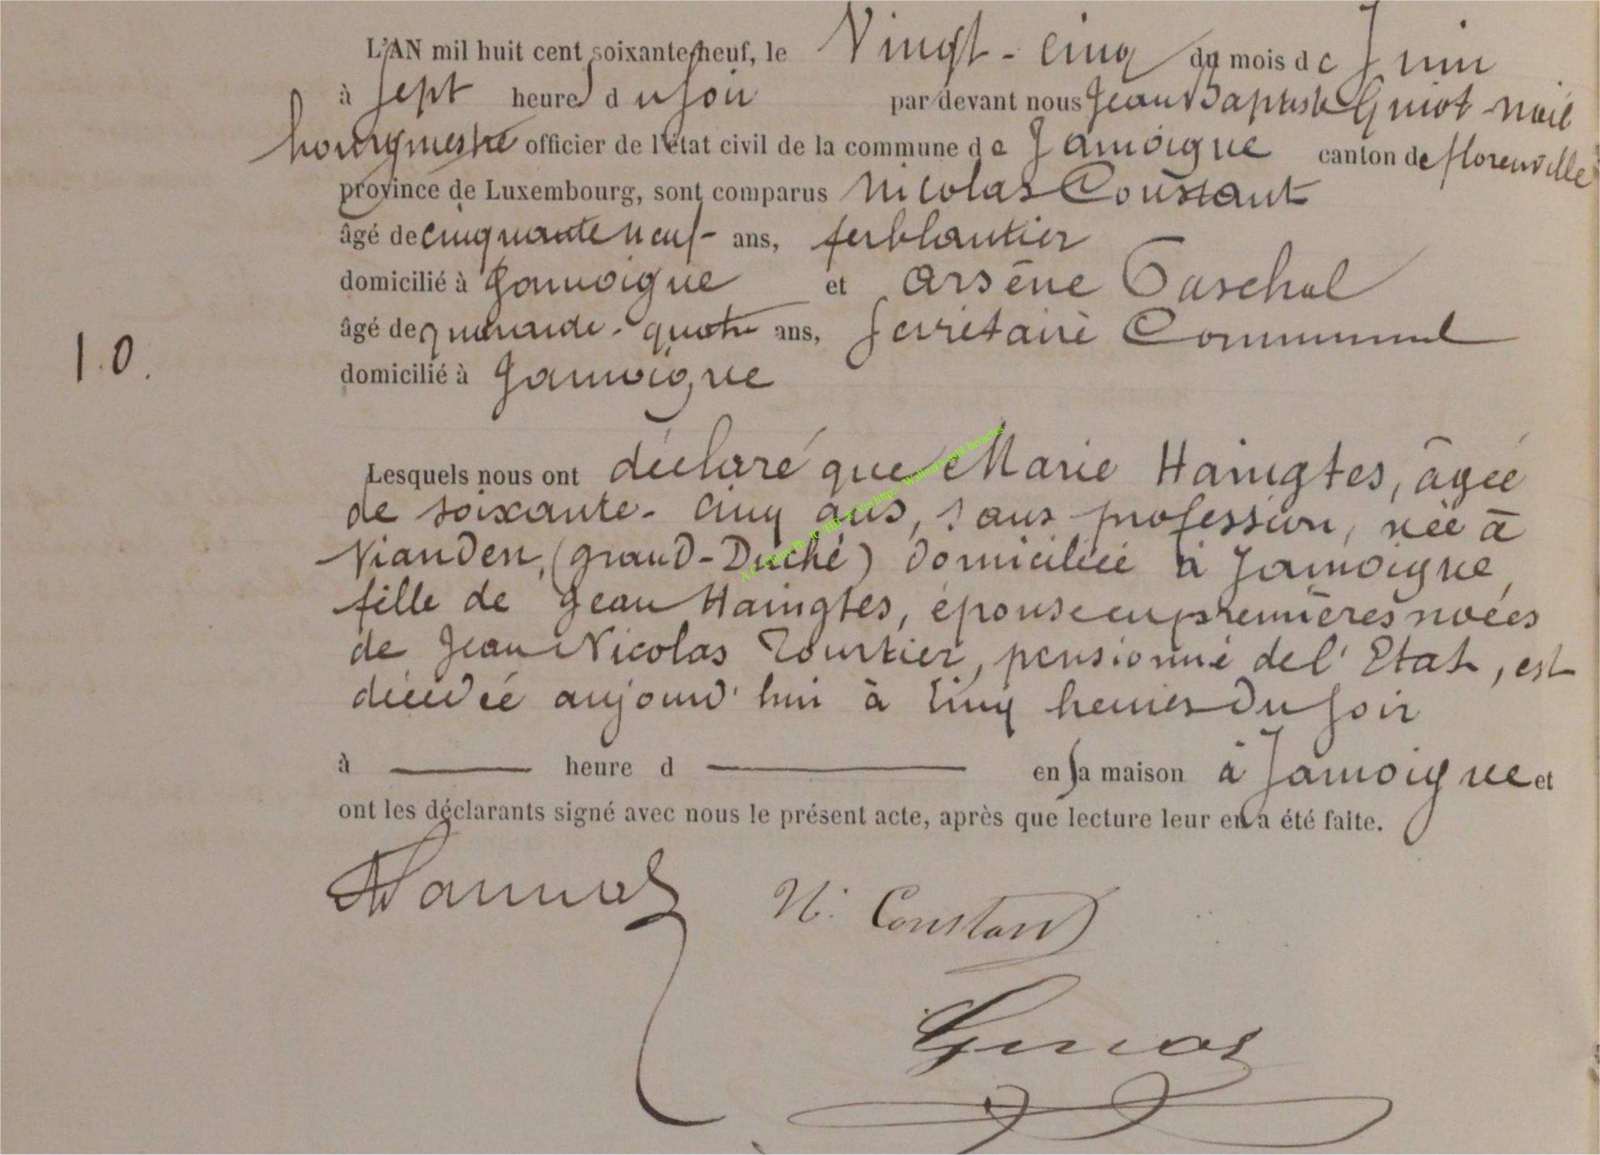 L'AN mil huit cent soixante neuf, le Vingt-cinq du mois de Juin
à sept heures du soir par devant nous Jean Baptiste Guiot Noël
bourgmestre officier de l'état civil de la commune de Jamoigne canton de florenville
province de Luxembourg, sont comparus Nicolas Constant
âgé de cinquante neuf ans, ferblantier
domicilié à Jamoigne et Arsène Paschal
âgé de quarante-quatre ans, Secrétaire Communal
domicilié à Jamoigne
10.
Lesquels nous ont déclaré que Marie Haingtes, âgée
de soixante-cinq ans, sans profession, née à
Vianden, (grand-Duché) domiciliée à Jamoigne,
fille de Jean Haingtes, épouse en premières noces
de Jean Nicolas Tourtier, pensionné de l'Etat, est
décédée aujourd'hui à cinq heures du soir
à heure d en sa maison à Jamoigne et
ont les déclarants signé avec nous le présent acte, après que lecture leur en a été faite.
N. Constant